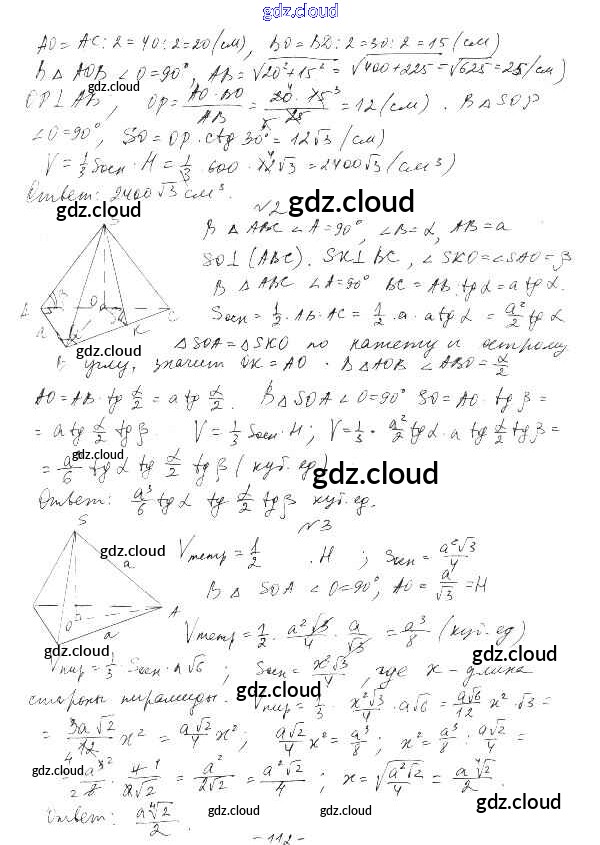 gdz.cloud
AO = AC : 2 = 40 : 2 = 20 (см), BO = BD : 2 = 30 : 2 = 15 (см)
В △ AOB ∠O = 90°, AB = √20² + 15² = √400 + 225 = √625 = 25 (см)
OP ⊥ AB, OP = AO · BO / AB = 20 · 15 / 25 = 12 (см). В △ SOP
∠O = 90°, SO = OP · ctg 30° = 12√3 (см)
V = 1/3 Sосн · H = 1/3 · 600 · 12√3 = 2400√3 (см³)
Ответ: 2400√3 см³.
gdz.cloud
gdz.cloud
N2
В △ ABC ∠A = 90°, ∠B = α, AB = a
SO ⊥ (ABC). SK ⊥ BC, ∠SKO = ∠SAO = β
В △ ABC ∠A = 90° BC = AB · tg α = a tg α.
Sосн = 1/2 · AB · AC = 1/2 · a · a tg α = a²/2 tg α
△ SOA = △ SKO по катету и острому
gdz.cloud
углу, значит OK = AO. В △ AOB ∠ABO = α/2
AO = AB · tg α/2 = a tg α/2. В △ SOA ∠O = 90° SO = AO · tg β =
= a tg α/2 tg β V = 1/3 Sосн · H; V = 1/3 · a²/2 tg α · a tg α/2 tg β =
gdz.cloud
= a³/6 tg α tg α/2 tg β (куб. ед)
gdz.cloud
Ответ: a³/6 tg α tg α/2 tg β куб. ед.
gdz.cloud
N3
S
a
A
O
a
gdz.cloud
Vтетр = 1/2 . H; Sосн = a²√3/4
В △ SOA ∠O = 90°, AO = a/√3 = H
Vтетр = 1/2 · a²√3/4 · a/√3 = a³/8 (куб. ед)
gdz.cloud
gdz.cloud
Vпир = 1/3 Sосн · a√6; Sосн = x²√3/4, где x - длина
gdz.cloud
стороны пирамиды. Vпир = 1/3 · x²√3/4 · a√6 = a√6/12 x² · √3 =
= 3a√2/12 x² = a√2/4 x²; a√2/4 x² = a³/8; x² = a³/8 : a√2/4 =
gdz.cloud
= a³/8 · 4/a√2 = a²/2√2 = a²√2/4; x = √a²√2/4 = a⁴√2/2
gdz.cloud
gdz.cloud
gdz.cloud
Ответ: a⁴√2/2.
gdz.cloud
- 112 -